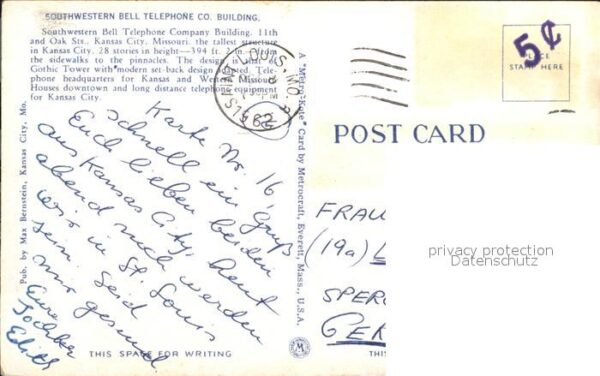 SOUTHWESTERN BELL TELEPHONE CO. BUILDING,
Southwestern Bell Telephone Company Building. 11th
and Oak Sts., Kansas City, Missouri, the tallest structure
in Kansas City. 28 stories in height—394 ft. 2 in. from
the sidewalks to the pinnacles. The design is that of
Gothic Tower with modern set-back design adopted. Tele-
phone headquarters for Kansas and Western Missouri.
Houses downtown and long distance telephone equipment
for Kansas City.
Pub. by Max Bernstein, Kansas City, Mo.
Karte Nr. 16,
schnell ein Gruß
Euch lieben beiden
aus Kansas City, heut
abend noch werden
wir in St. Louis
sein. Seid
nur gesund
Eure
Tochter
Edith
THIS SPACE FOR WRITING
A "Metro-Kote" Card by Metrocraft, Everett, Mass., U.S.A.
ST. LOUIS, MO.
PM
1962
5¢
PLACE
STAMP HERE
POST CARD
FRAU
(19a) L
SPER
GER
THIS
privacy protection
Datenschutz
M